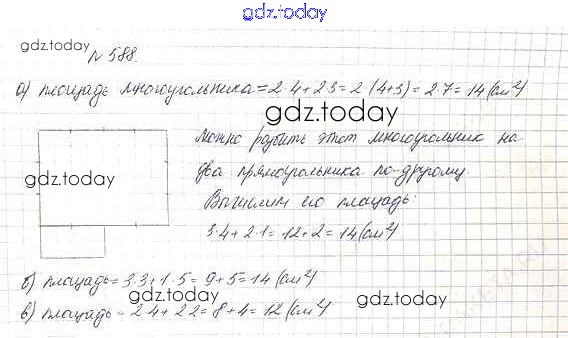 gdz.today
gdz.today
№ 588.
а) площадь многоугольника = 2·4+2·3 = 2·(4+3) = 2·7 = 14 (см²)
gdz.today
Можно разбить этот многоугольник на
два прямоугольника по-другому.
gdz.today
Вычислим его площадь:
3·4 + 2·1 = 12+2 = 14 (см²)
б) площадь = 3·3 + 1·5 = 9+5 = 14 (см²)
gdz.today
gdz.today
в) площадь = 2·4 + 2·2 = 8+4 = 12 (см²)